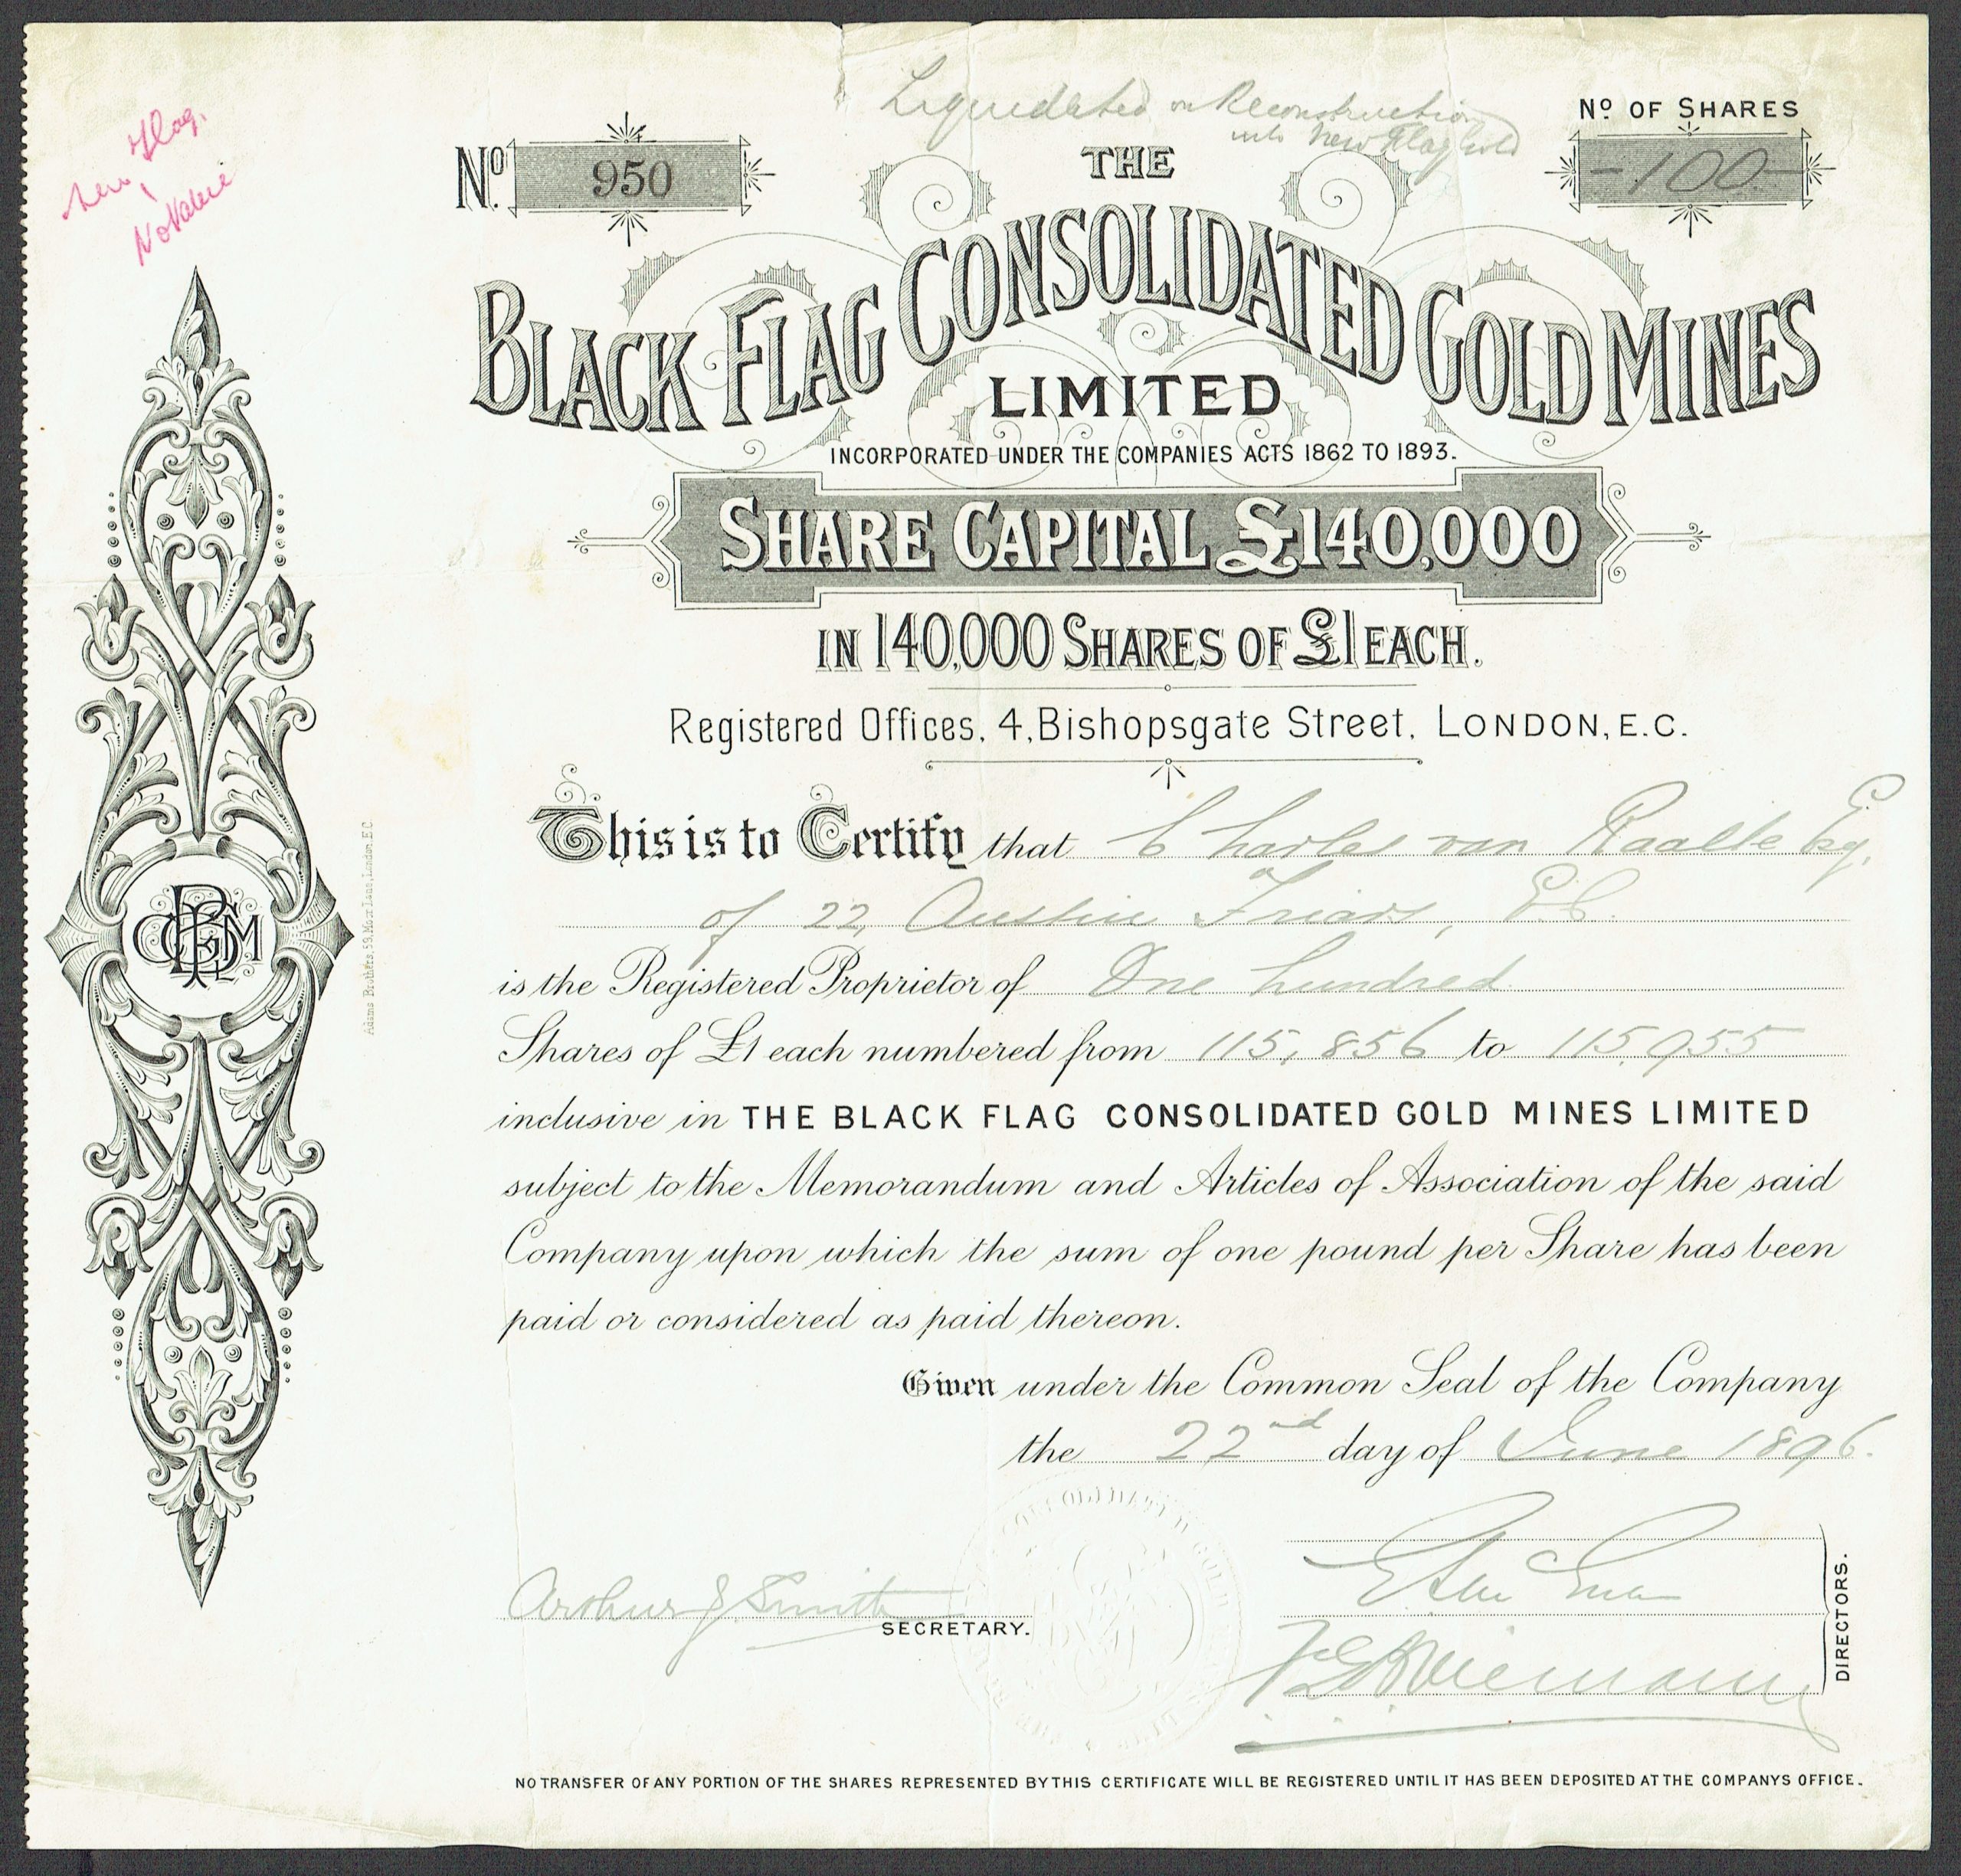 New Flag.
No Value
Liquidated on Reconstruction
into New Flag Gold
Nº 950
Nº OF SHARES
-100-
THE
BLACK FLAG CONSOLIDATED GOLD MINES
LIMITED
INCORPORATED UNDER THE COMPANIES ACTS 1862 TO 1893.
SHARE CAPITAL £140,000
IN 140,000 SHARES OF £1 EACH.
Registered Offices, 4, Bishopsgate Street, LONDON, E.C.
This is to Certify that Charles van Raalte Esq.
of 22, Austin Friars, E.C.
is the Registered Proprietor of One hundred
Shares of £1 each numbered from 115,856 to 115,955
inclusive in THE BLACK FLAG CONSOLIDATED GOLD MINES LIMITED
subject to the Memorandum and Articles of Association of the said
Company upon which the sum of one pound per Share has been
paid or considered as paid thereon.
Given under the Common Seal of the Company
the 22nd day of June 1896.
Arthur J. Smith
SECRETARY.
DIRECTORS.
NO TRANSFER OF ANY PORTION OF THE SHARES REPRESENTED BY THIS CERTIFICATE WILL BE REGISTERED UNTIL IT HAS BEEN DEPOSITED AT THE COMPANYS OFFICE.
Adams Brothers, 59, Moor Lane, London, E.C.